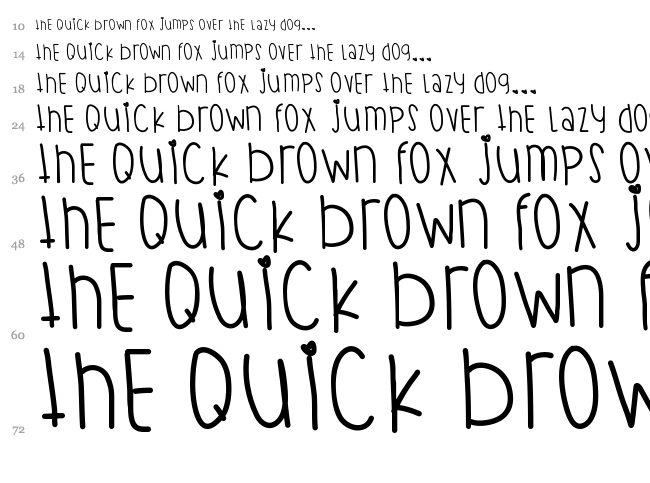 10 thE QUiCk brown fox jumps over the lazy dog...
14 thE QUiCk brown fox jumps over the lazy dog...
18 thE QUiCk brown fox jumps over the lazy dog...
24 thE QUiCk brown fox jumps over the lazy do
36 thE QUiCk brown fox jumps ov
48 thE QUiCk brown fox j
60 thE QUiCk brown f
72 thE QUiCk brow